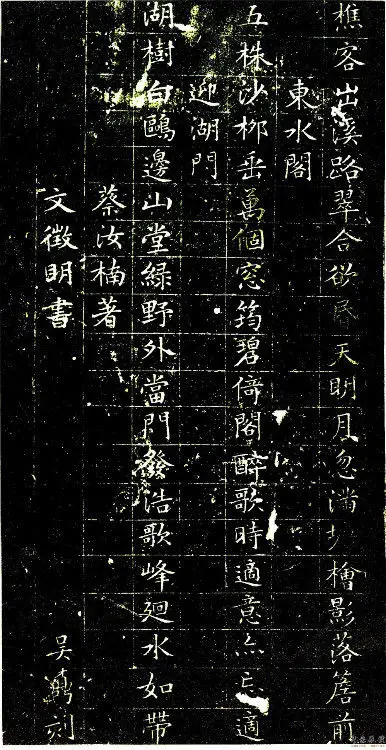 樵客出溪路翠合欲昏天明月忽滿檜影落簷前
東水閣
五株沙柳垂萬個窓筠碧倚閣醉歌時適意亦忘適
迎湖門
湖樹白鷗邊山堂綠野外當門發浩歌峰廻水如帶
蔡汝楠著
文徵明書
吴鼒刻